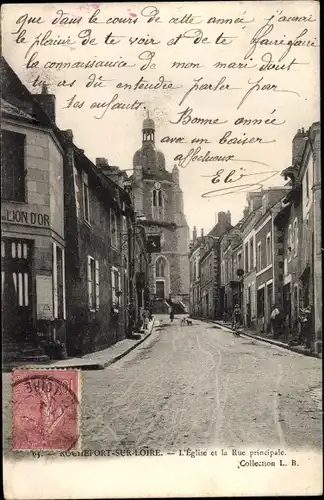 que dans le cours de cette année j'aurai
le plaisir de te voir et de te faire faire
la connaissance de mon mari dont
tu as dû entendre parler par
tes enfants.
Bonne année
avec un baiser
affectueux
Eli
LION D'OR
63. — ROCHEFORT-SUR-LOIRE. — L'Église et la Rue principale.
Collection L. B.